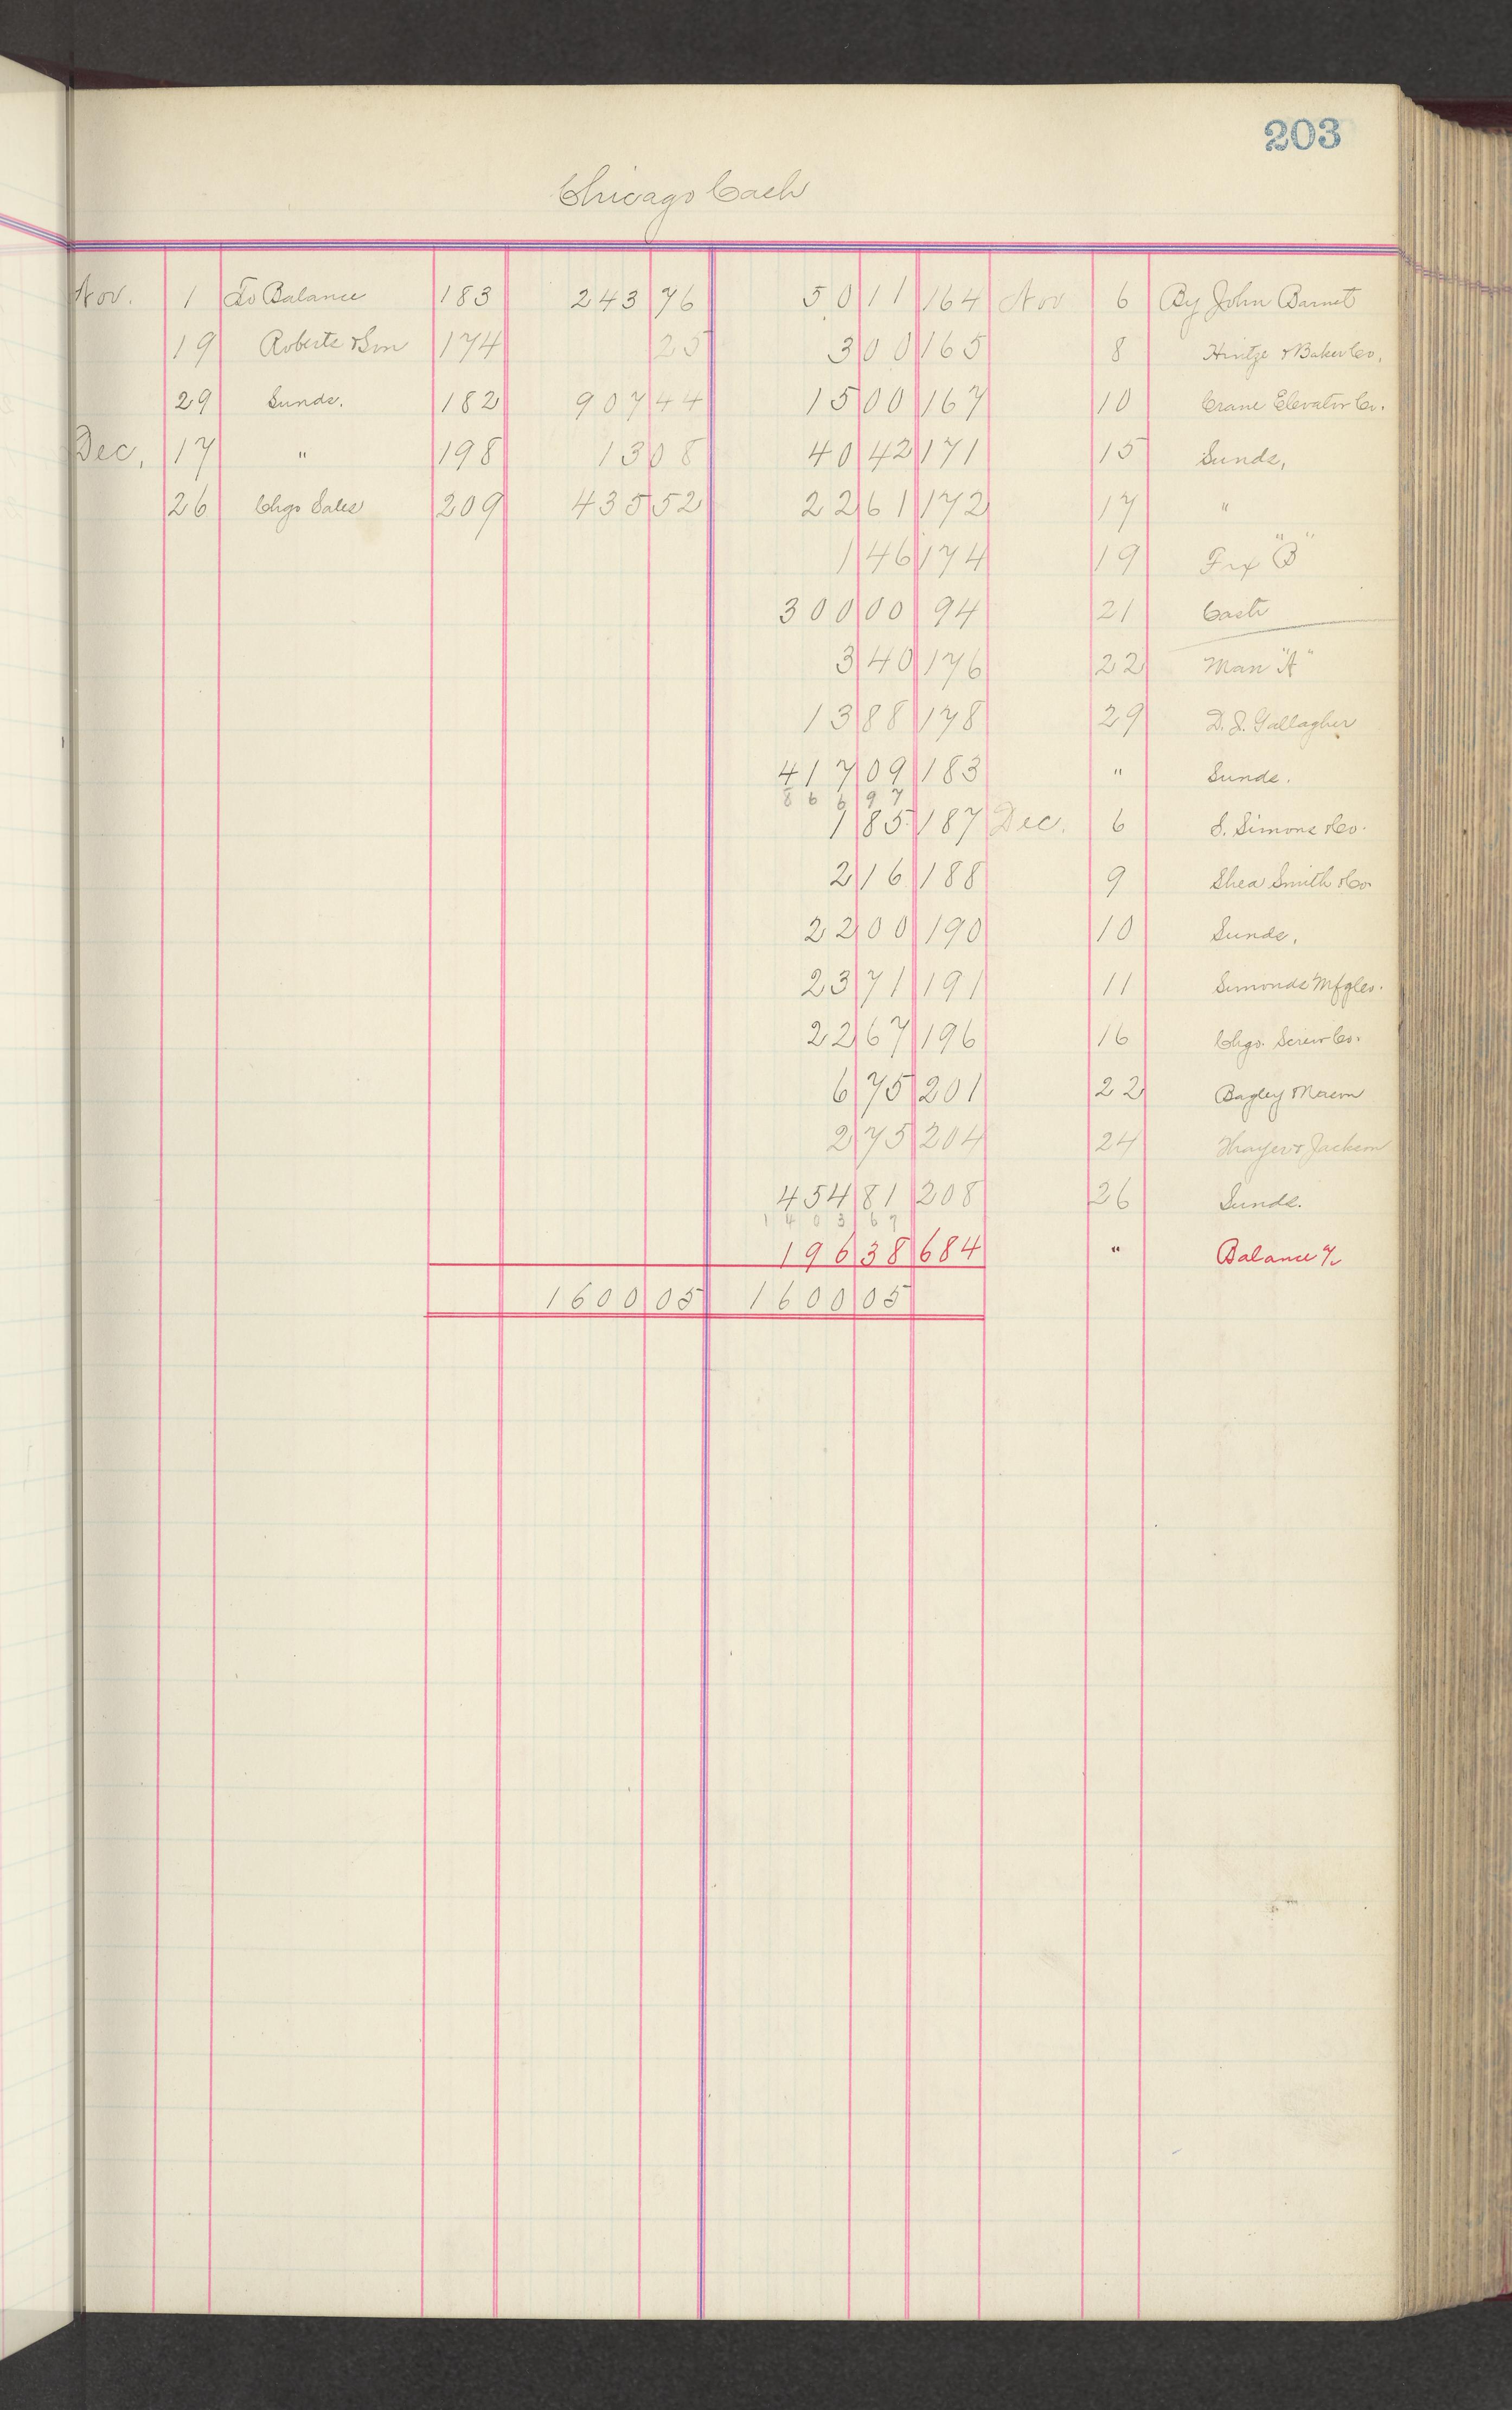 203
Chicago Cash
Nov. 1 To Balance 183 243 76 50 11 164 Nov 6 By John Barnet
19 Roberts & Son 174 25 3 00 165 8 Hintze & Baker Co.
29 Sunds. 182 907 44 15 00 167 10 Crane Elevator Co.
Dec. 17 " 198 13 08 40 42 171 15 Sunds,
26 Chgo Sales 209 435 52 22 61 172 17 "
1 46 174 19 Frx "B"
300 00 94 21 Cash
3 40 176 22 Man "A"
13 88 178 29 D. J. Gallagher
417 09 183 " Sunds.
866 97
1 85 187 Dec. 6 S. Simons & Co.
2 16 188 9 Shea Smith & Co
22 00 190 10 Sunds,
23 71 191 11 Simonds Mfg Co.
22 67 196 16 Chgo. Screw Co.
6 75 201 22 Bagley
2 75 204 24 Thayer & Jackson
454 81 208 26 Sunds.
1403 67
196 38 684 " Balance %
1600 05 1600 05